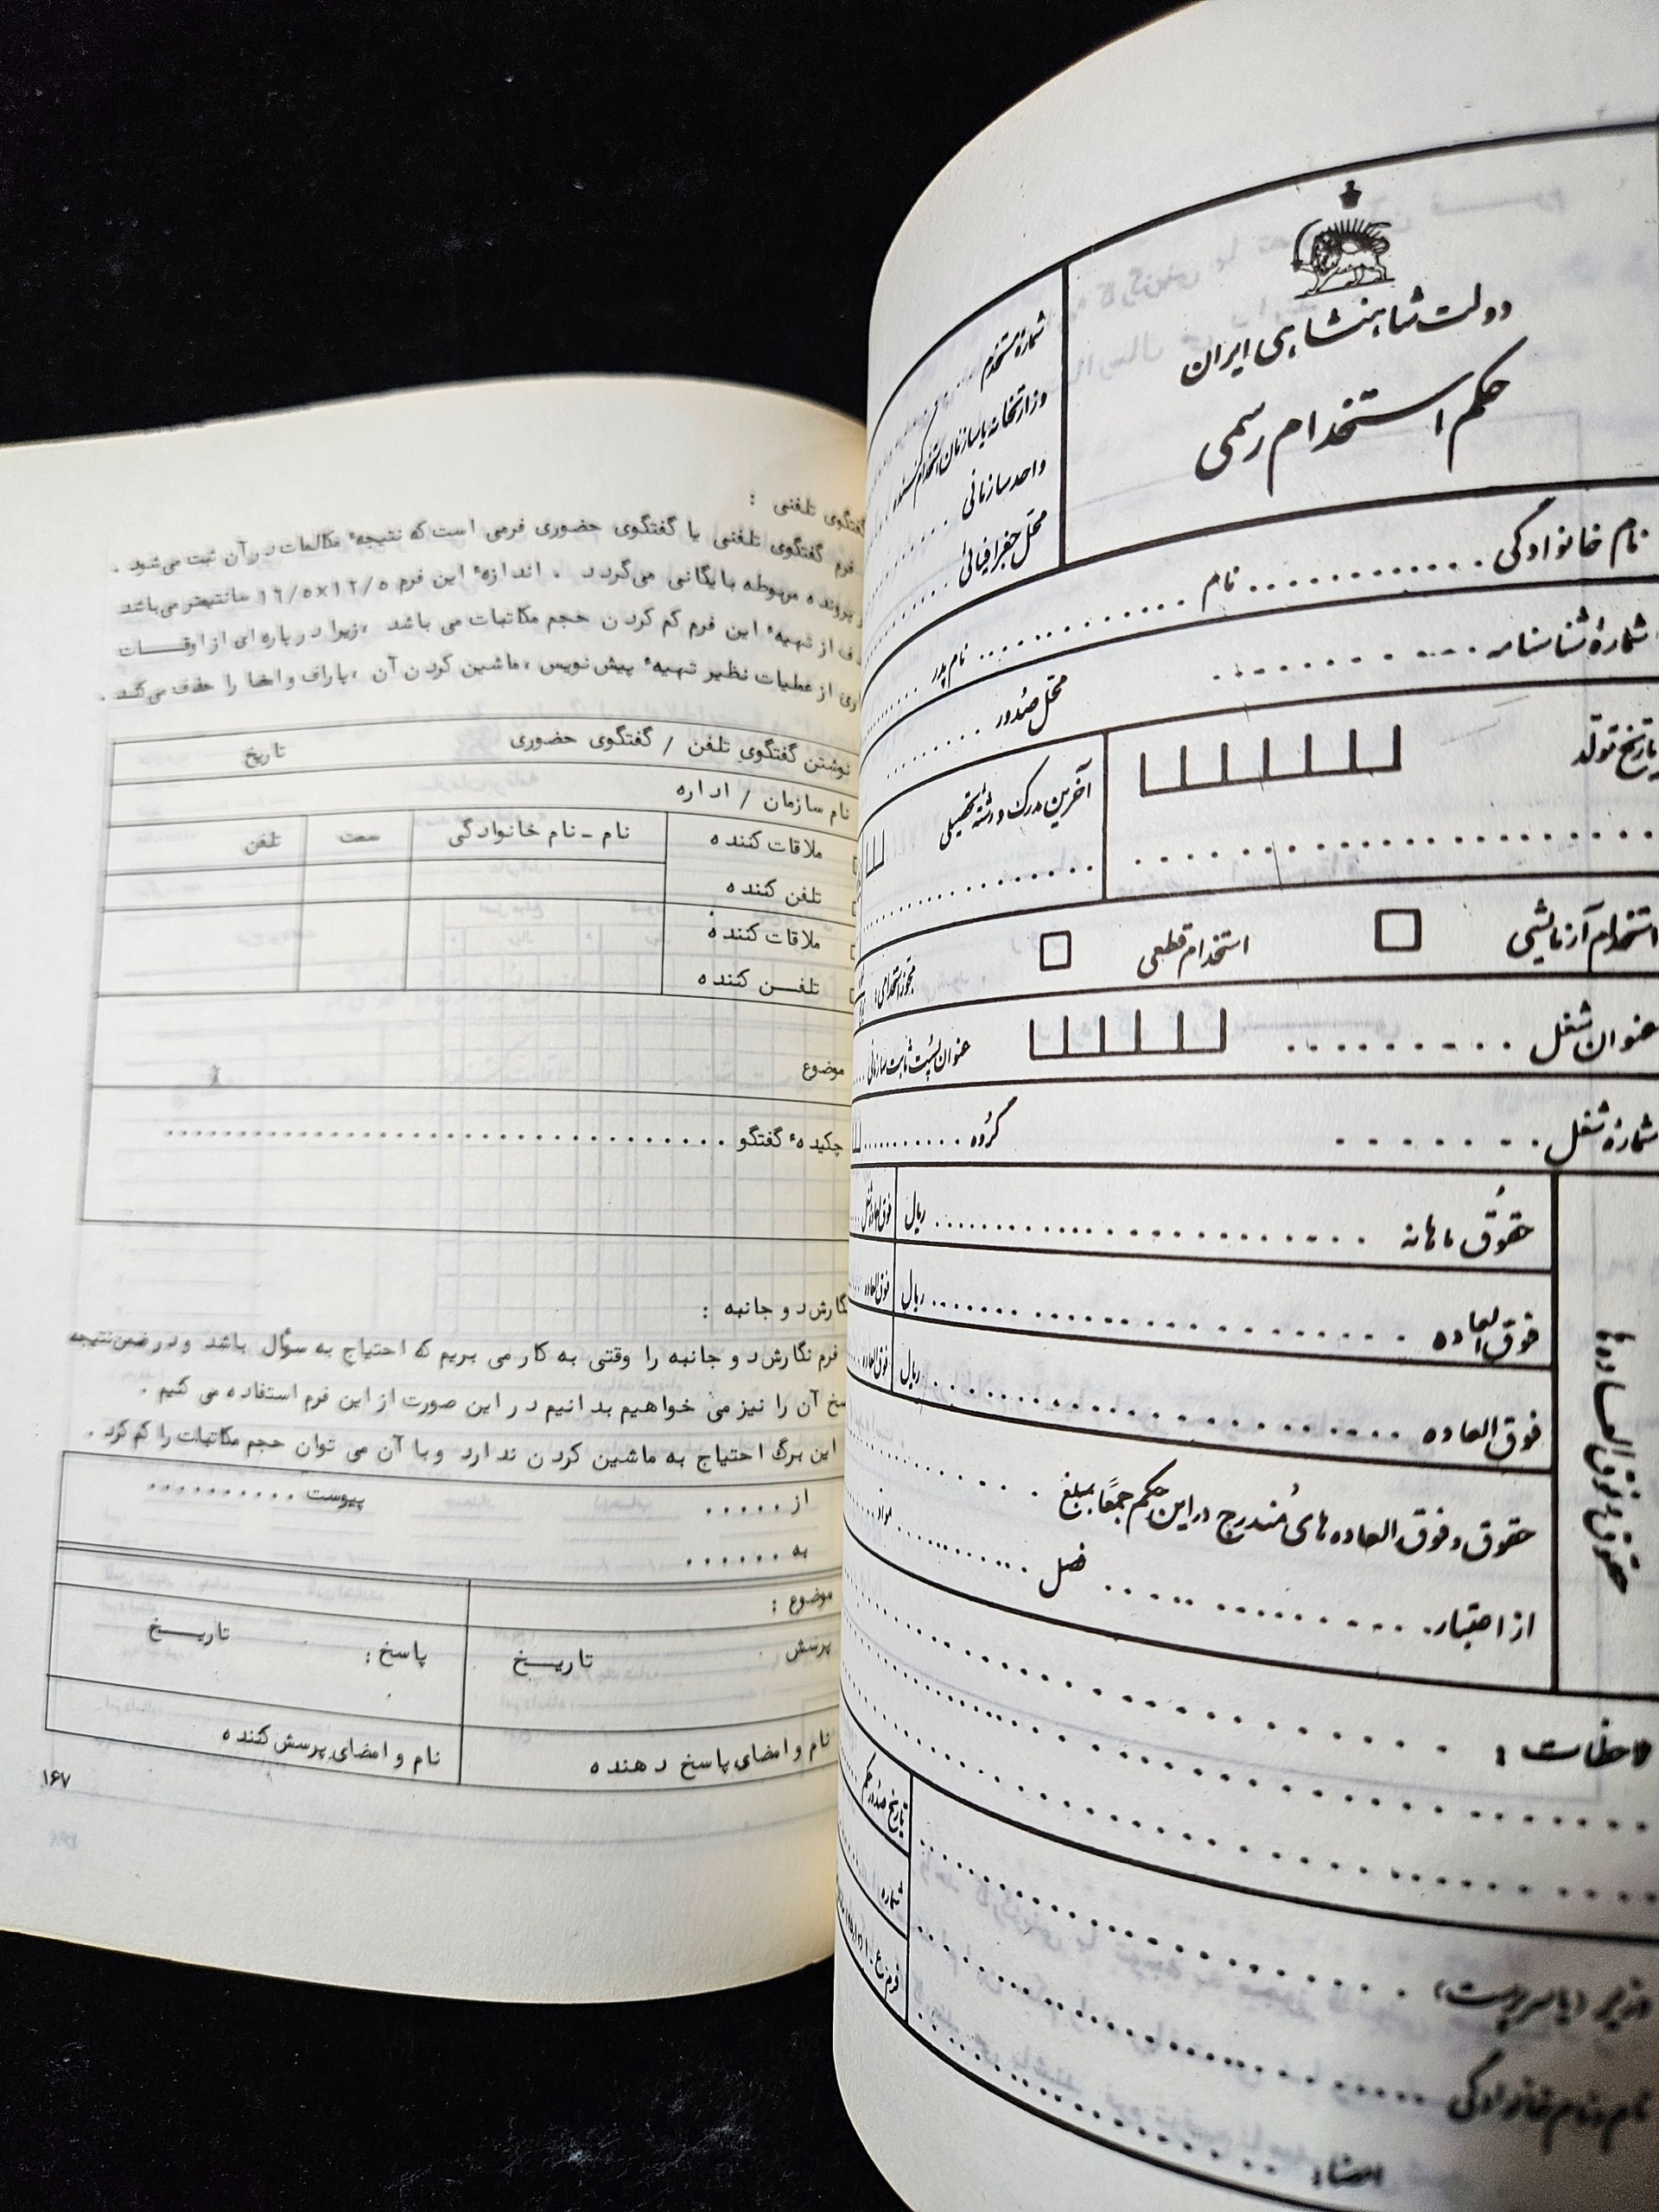 دولت شاهنشاهی ایران
حکم استخدام رسمی
شماره مستخدم
وزارتخانه یا سازمان استخدام کننده
واحد سازمانی
محل جغرافیائی
نام خانوادگی ............ نام ............ نام پدر ......
شمارهٔ شناسنامه ............ محل صدور ......
تاریخ تولد
آخرین مدرک و رشته تحصیلی
استخدام آزمایشی □ استخدام قطعی □ مجوز استخدامی :
عنوان شغل ......... عنوان پست ثابت سازمانی ....
شمارهٔ شغل ....... گروه ..........
حقوق و فوق العاده ها
حقوق ماهانه ............ ریال
فوق العاده ............ ریال فوق العاده
فوق العاده ............ ریال فوق العاده
حقوق و فوق العاده های مندرج در این حکم جمعاً بمبلغ ......
از اعتبار ............ فصل ............ مواد ......
ملاحظات :
وزیر (یا سرپرست) ............
نام و نام خانوادگی ............
امضاء :
تاریخ صدور حکم
شماره
گفتگوی تلفنی :
فرم گفتگوی تلفنی یا گفتگوی حضوری فرمی است که نتیجهٔ مکالمات در آن ثبت می‌شود .
پرونده مربوطه بایگانی می‌گردد . اندازهٔ این فرم ۱۶/۵×۱۲/۵ سانتیمتر می‌باشد
از تهیهٔ این فرم کم کردن حجم مکاتبات می باشد ، زیرا در پاره‌ای از اوقـــات
از عملیات نظیر تهیهٔ پیش نویس ، ماشین کردن آن ، پاراف و امضا را حذف می‌کند .
نوشتن گفتگوی تلفن / گفتگوی حضوری تاریخ
نام سازمان / اداره
ملاقات کننده نام - نام خانوادگی سمت تلفن
تلفن کننده
ملاقات کننده
تلفـــن کننده
موضوع
چکیدهٔ گفتگو ............
نگارش دو جانبه :
فرم نگارش دو جانبه را وقتی به کار می بریم که احتیاج به سؤال باشد و در ضمن نتیجه
پاسخ آن را نیز می خواهیم بدانیم در این صورت از این فرم استفاده می کنیم .
این برگ احتیاج به ماشین کردن ندارد و با آن می توان حجم مکاتبات را کم کرد .
از ..... پیوست ..........
به ......
موضوع :
پرسش تاریـــخ پاسخ : تاریـــخ
نام و امضای پاسخ دهنده نام و امضای پرسش کننده
۱۶۷